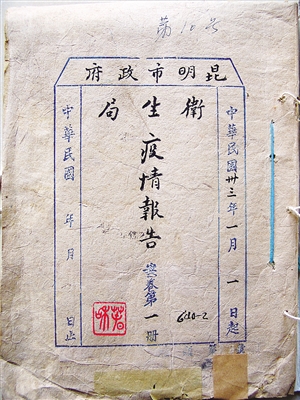 第10号
昆明市政府
中華民國卅三年一月一日起
衛生局
疫情報告
案卷第一册
6210-2
中華民國 年 月 日止